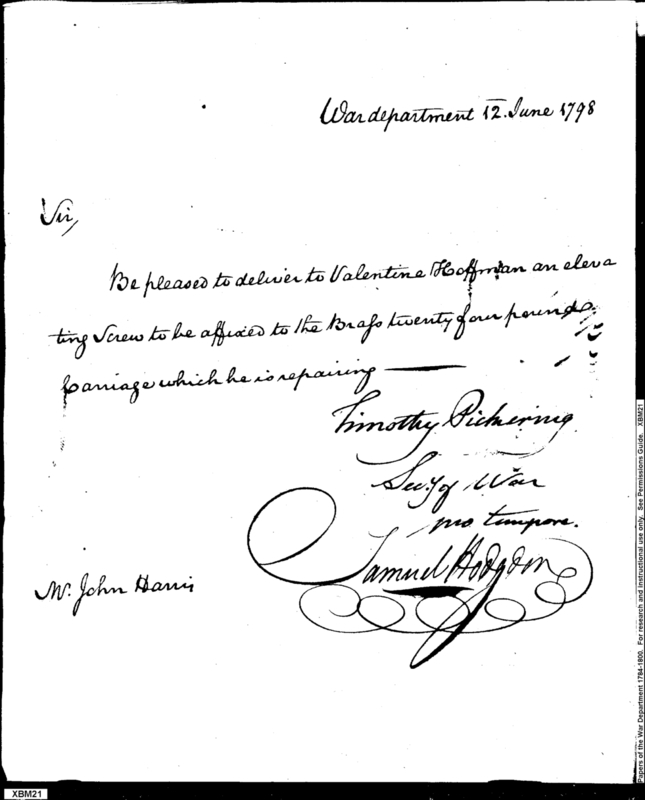 War department 12. June 1798
Sir,
Be pleased to deliver to Valentine Hoffman an eleva
ting Screw to be affixed to the Brass twenty four pounds
Carriage which he is repairing
Timothy Pickering
Secy. of War
pro tempore.
Samuel Hodgdon
Mr. John Harris
Papers of the War Department 1784-1800. For research and instructional use only. See Permissions Guide. XBM21
XBM21